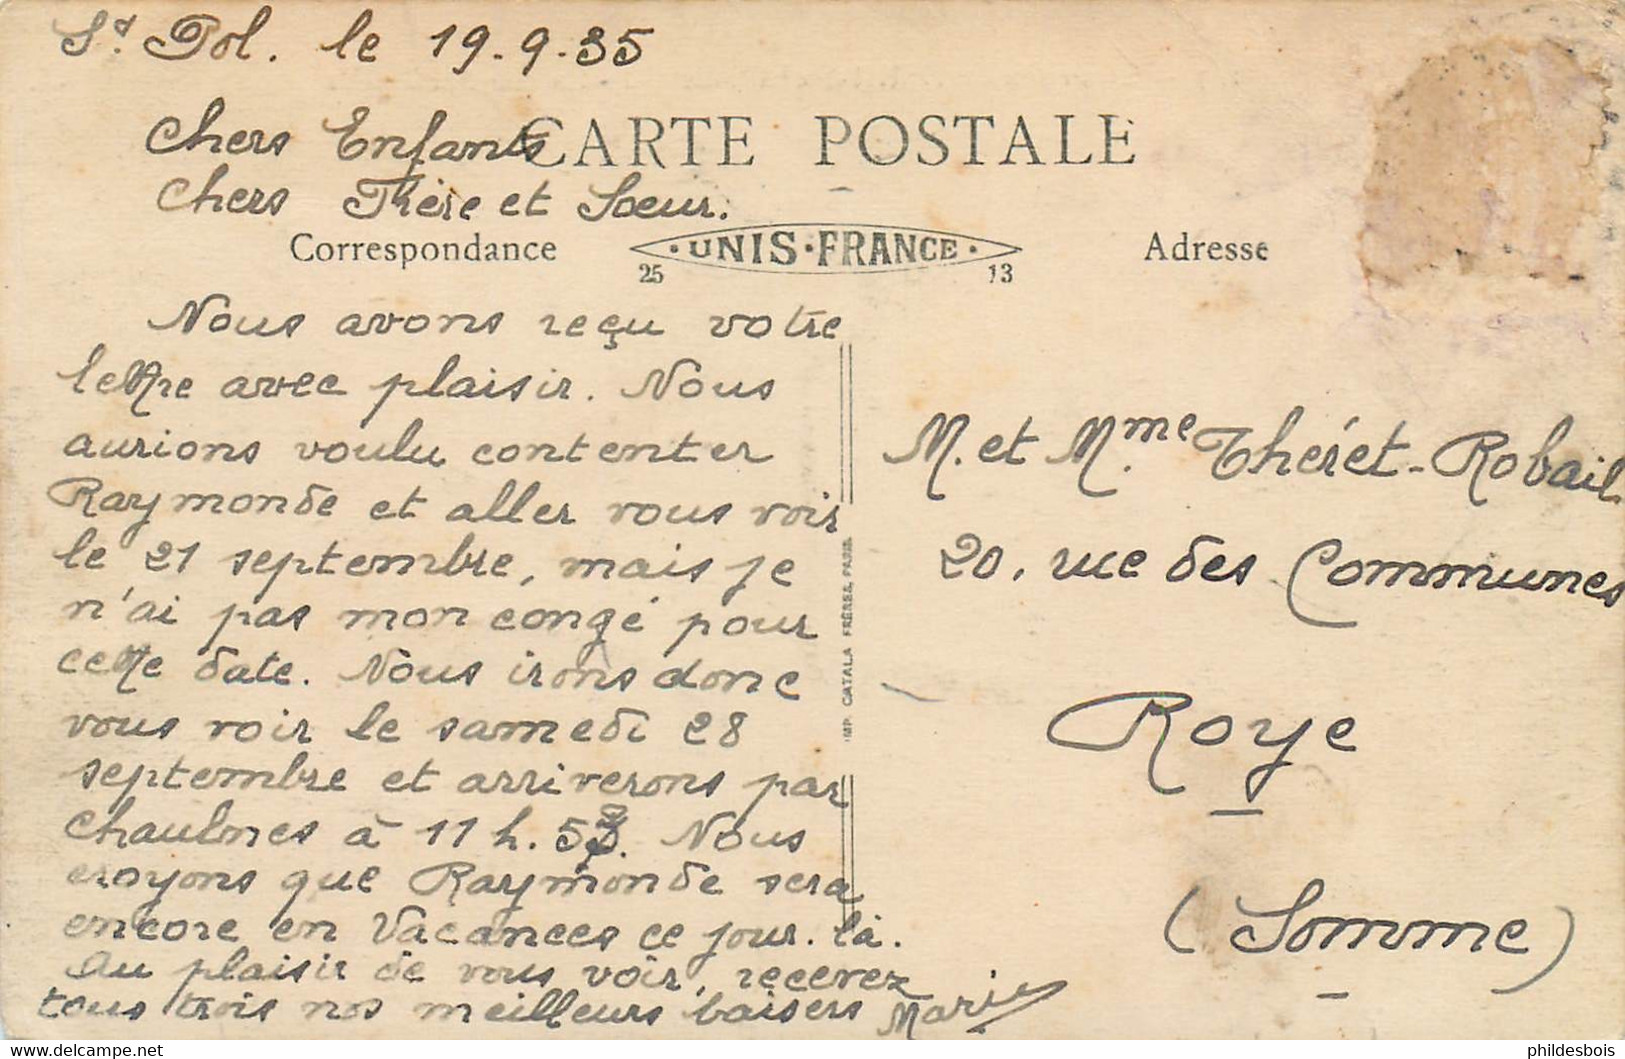 St Pol. le 19-9-35
Chers Enfants
CARTE POSTALE
Chers Frère et Soeur.
Correspondance
· UNIS · FRANCE ·
25 13
Adresse
Nous avons reçu votre
lettre avec plaisir. Nous
aurions voulu contenter
Raymonde et aller vous voir
le 21 septembre, mais je
n'ai pas mon congé pour
cette date. Nous irons donc
vous voir le samedi 28
septembre et arriverons par
Chaulnes à 11 h. 52. Nous
croyons que Raymonde sera
encore en vacances ce jour-là.
Au plaisir de vous voir, recevez
tous trois nos meilleurs baisers
IMP. CATALA FRÈRES, PARIS
M. et Mme Théret-Robail
20, rue des Communes
Roye
(Somme)
phildesbois